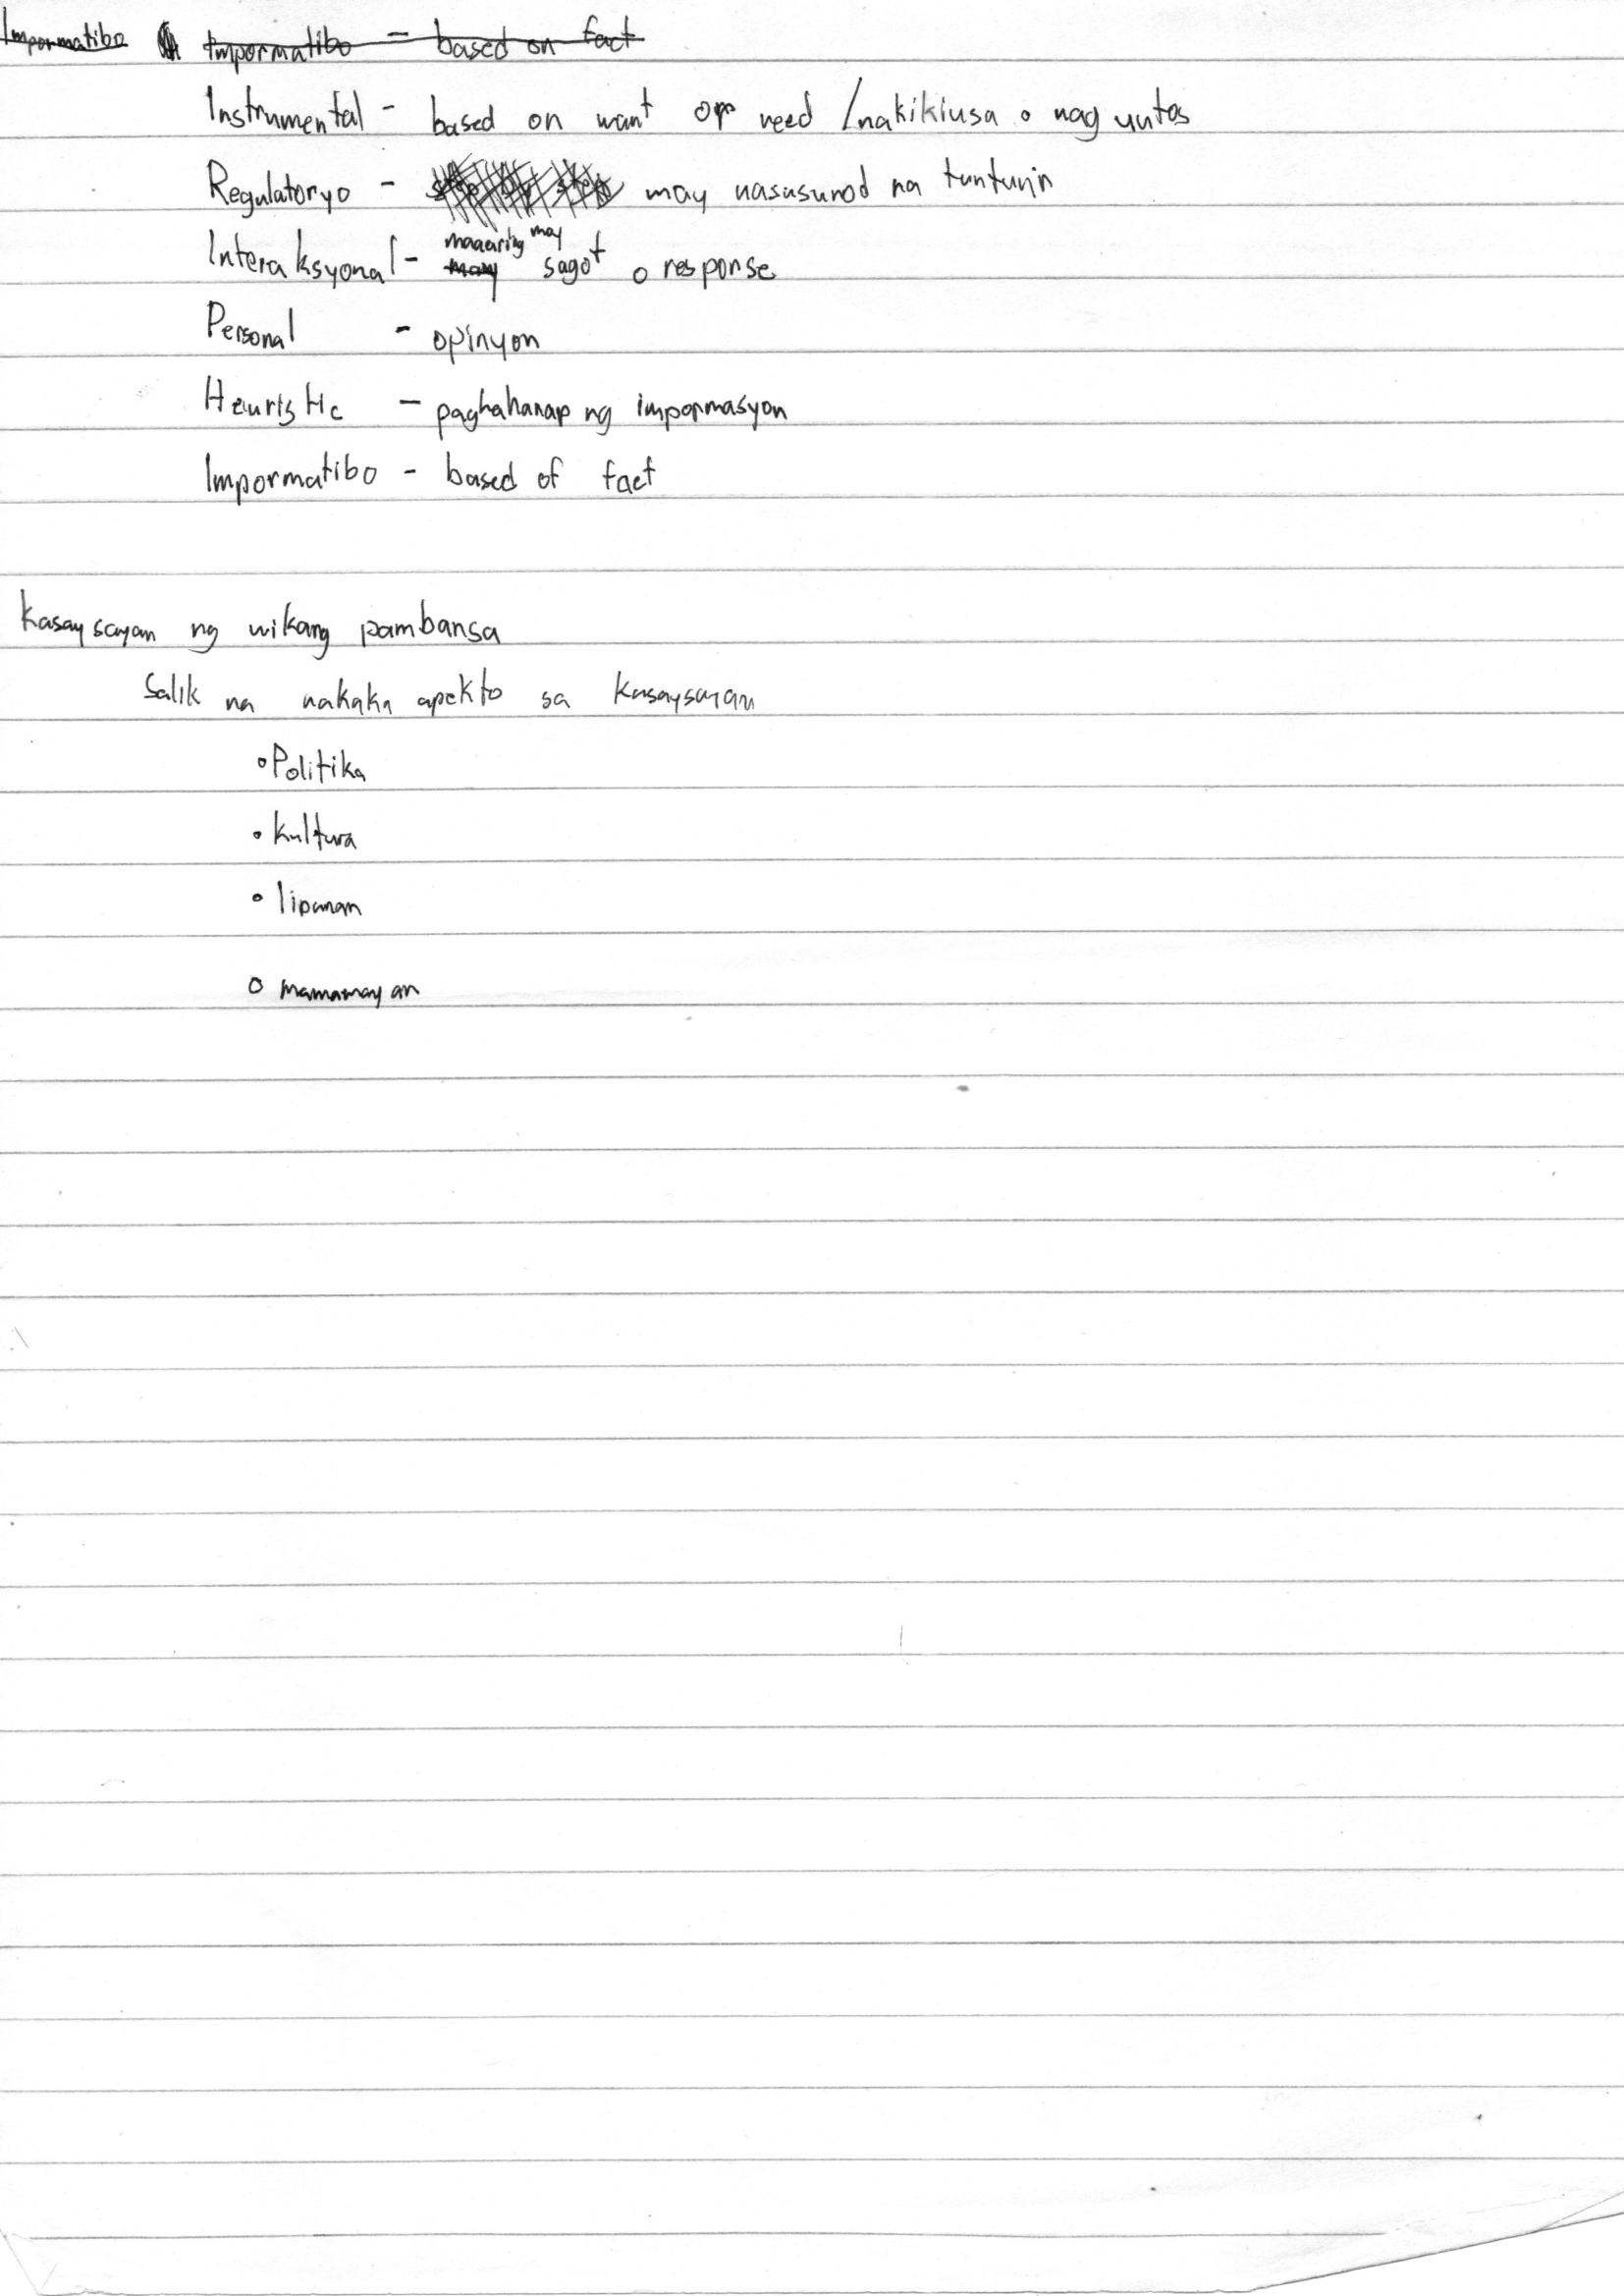 Impormatibo Impormatibo - based on fact
Instrumental - based on want or need /nakikiusa o nag uutos
Regulatoryo - step by step may nasusunod na tuntunin
maaaring may
Interaksyonal - may sagot o response
Personal - opinyon
Heuristic - paghahanap ng impormasyon
Impormatibo - based of fact
Kasaysayan ng wikang pambansa
Salik na nakaka apekto sa kasaysayan
• Politika
• kultura
• lipunan
• mamamayan